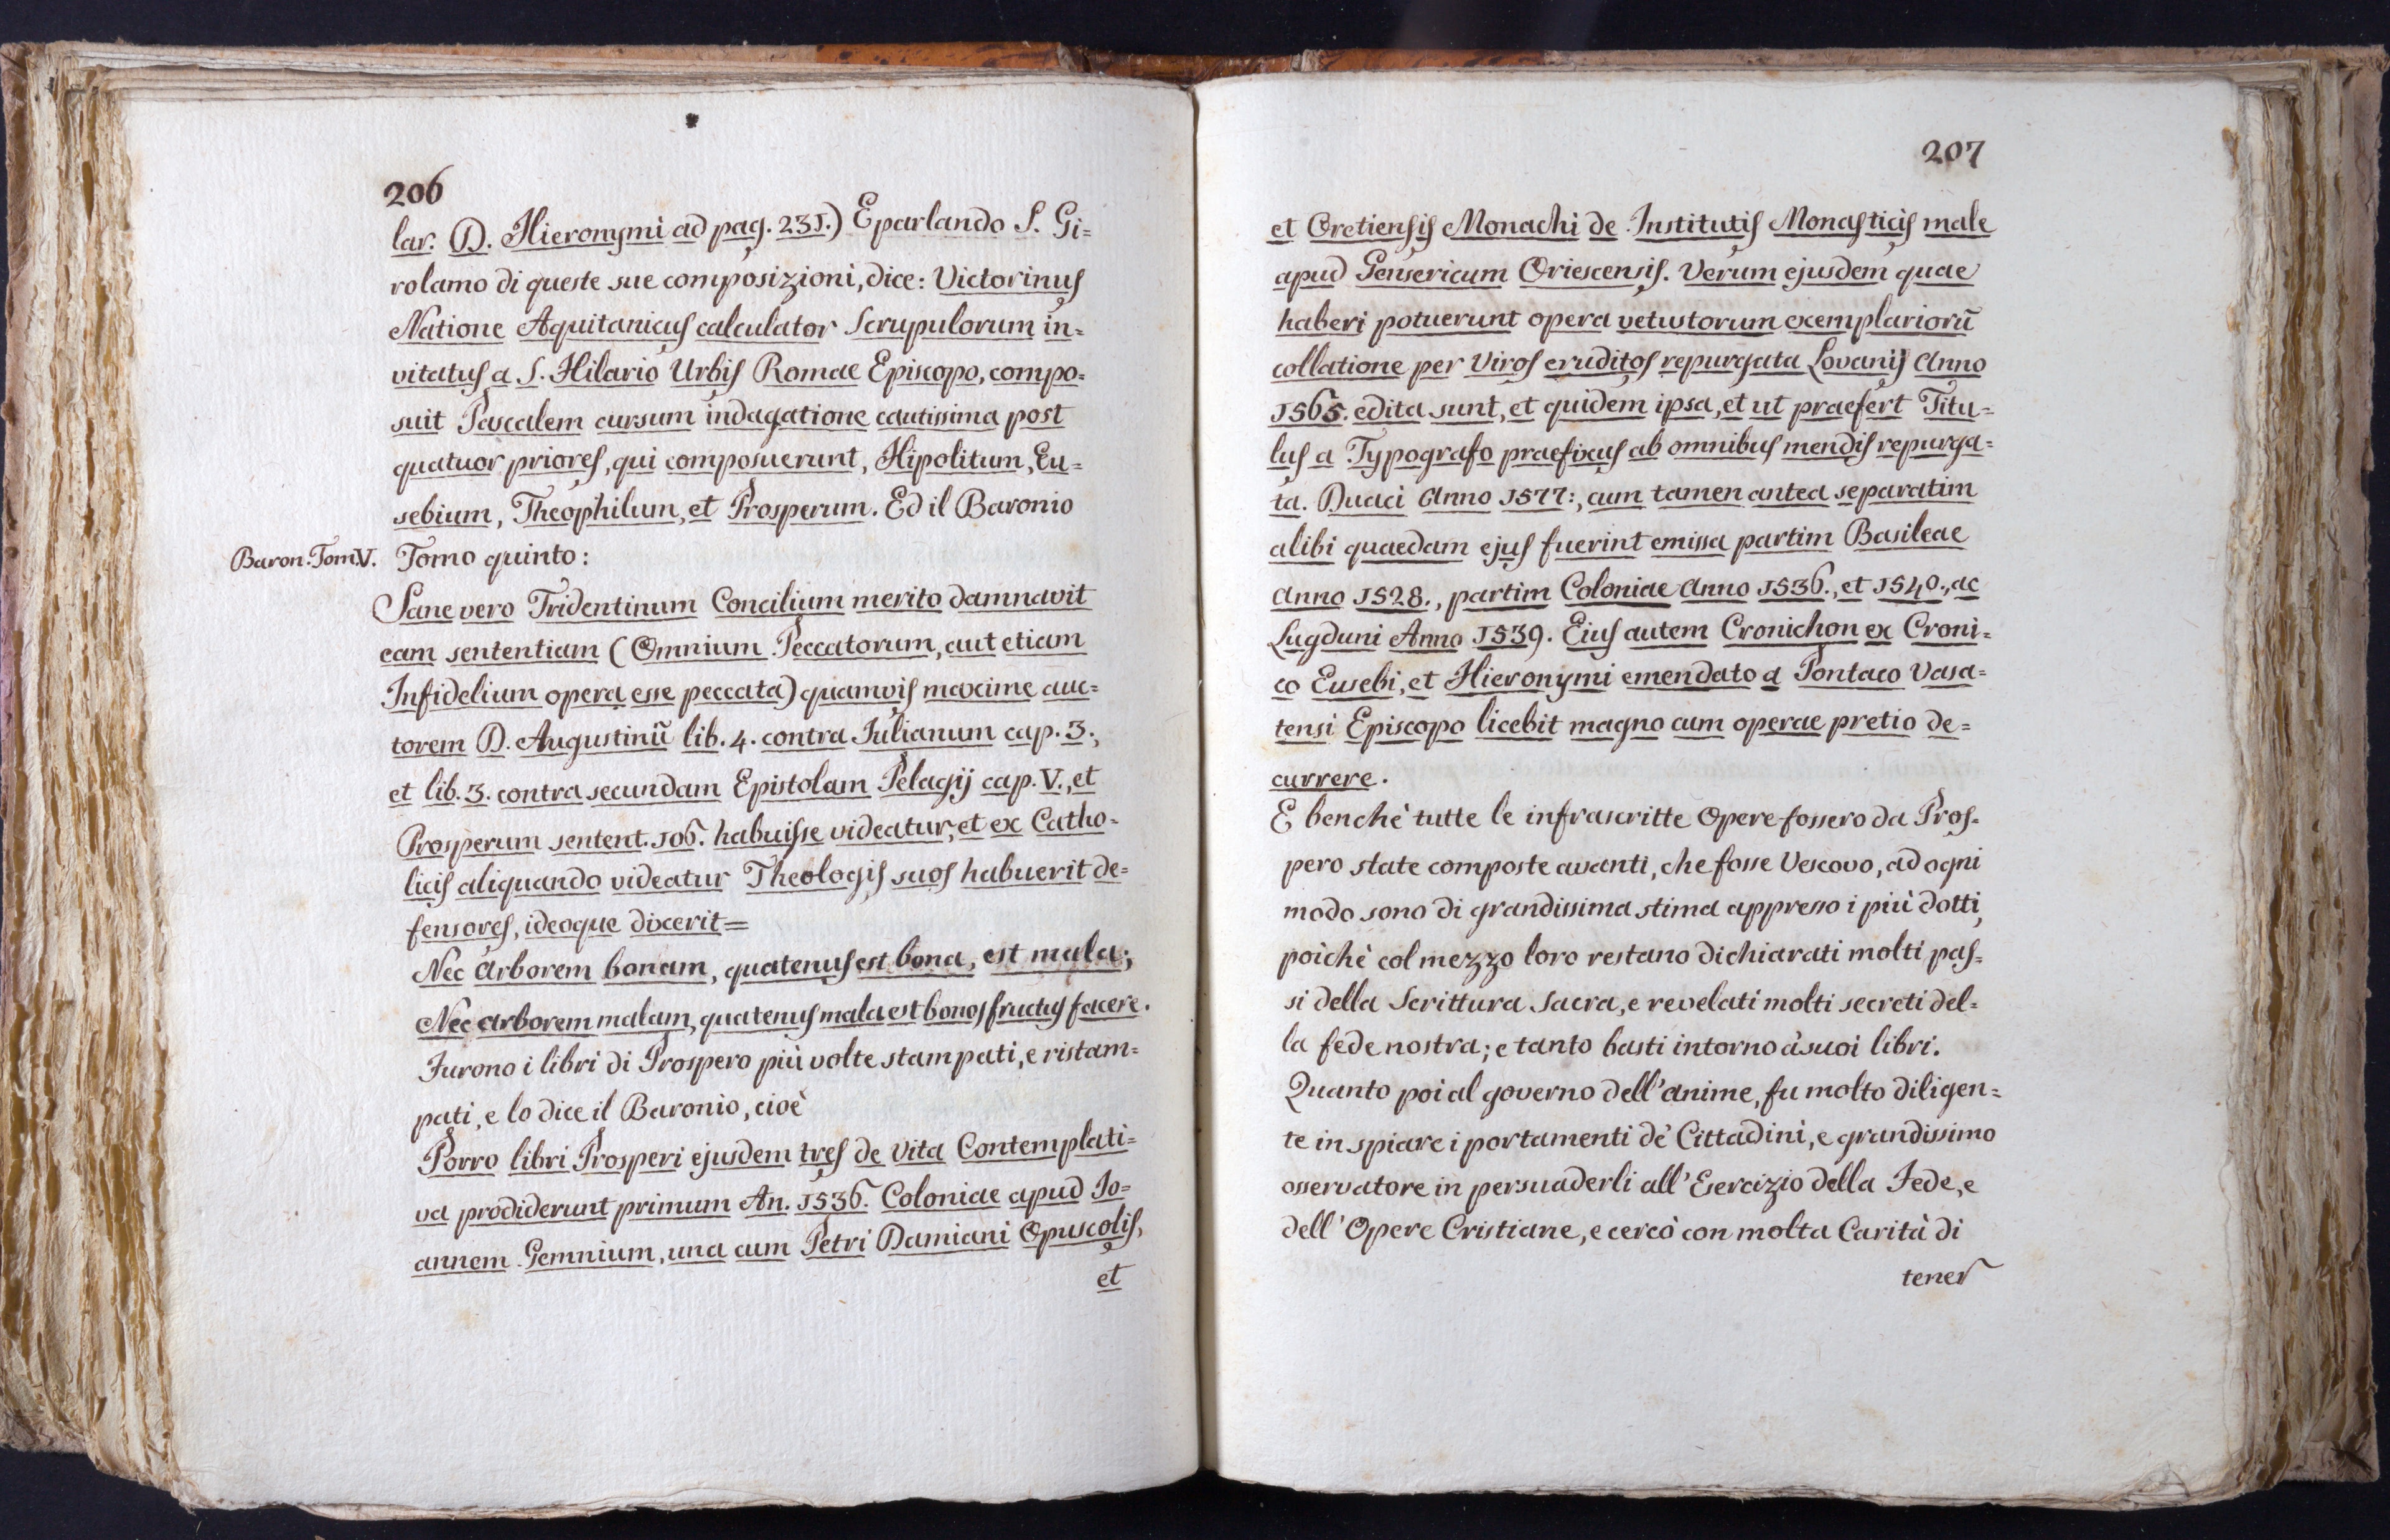 206
lar. D. Hieronymi ad pag. 231.) E parlando S. Gi=
rolamo di queste sue composizioni, dice: Victorinus
Natione Aquitanicus calculator Scrupulorum in=
vitatus a S. Hilario Urbis Romae Episcopo, compo=
suit Pascalem cursum indagatione cautissima post
quatuor priores, qui composuerunt, Hipolitum, Eu=
sebium, Theophilum, et Prosperum. Ed il Baronio
Baron. Tom. V. Tomo quinto:
Sane vero Tridentinum Concilium merito damnavit
eam sententiam (Omnium Peccatorum, aut etiam
Infidelium opera esse peccata) quamvis maxime auc=
torem D. Augustinũ lib. 4. contra Iulianum cap. 3.,
et lib. 3. contra secundam Epistolam Pelagij cap. V., et
Prosperum sentent. 106. habuisse videatur, et ex Catho=
licis aliquando videatur Theologis suos habuerit de=
fensores, ideoque dixerit=
Nec Arborem bonam, quatenus est bona, est mala;
Nec arborem malam, quatenus mala est bonos fructus facere.
Furono i libri di Prospero più volte stampati, e ristam=
pati, e lo dice il Baronio, cioè
Porro libri Prosperi ejusdem tres de Vita Contemplati=
va prodiderunt primum An. 1536. Coloniae apud Jo=
annem Gemnium, una cum Petri Damiani Opuscolis,
et
207
et Oretiensis Monachi de Institutis Monasticis male
apud Gensericum Oriescensis. Verum ejusdem quae
haberi potuerunt opera vetustorum exemplariorũ
collatione per Viros eruditos repurgata Lovanij Anno
1565. edita sunt, et quidem ipsa, et ut praefert Titu=
lus a Typografo praefixus ab omnibus mendis repurga=
ta. Duaci Anno 1577:, cum tamen antea separatim
alibi quaedam ejus fuerint emissa partim Basileae
Anno 1528., partim Coloniae Anno 1536., et 1540., ac
Lugduni Anno 1539. Eius autem Cronichon ex Croni=
co Eusebi, et Hieronymi emendato a Pontaco Vasa=
tensi Episcopo licebit magno cum operae pretio de=
currere.
E benchè tutte le infrascritte Opere fossero da Pros=
pero state composte avanti, che fosse Vescovo, ad ogni
modo sono di grandissima stima appresso i più dotti,
poichè col mezzo loro restano dichiarati molti pas=
si della Scrittura Sacra, e revelati molti secreti del=
la fede nostra; e tanto basti intorno à suoi libri.
Quanto poi al governo dell'anime, fu molto diligen=
te in spiare i portamenti de' Cittadini, e grandissimo
osservatore in persuaderli all'Esercizio della Fede, e
dell'Opere Cristiane, e cercò con molta Carità di
tener